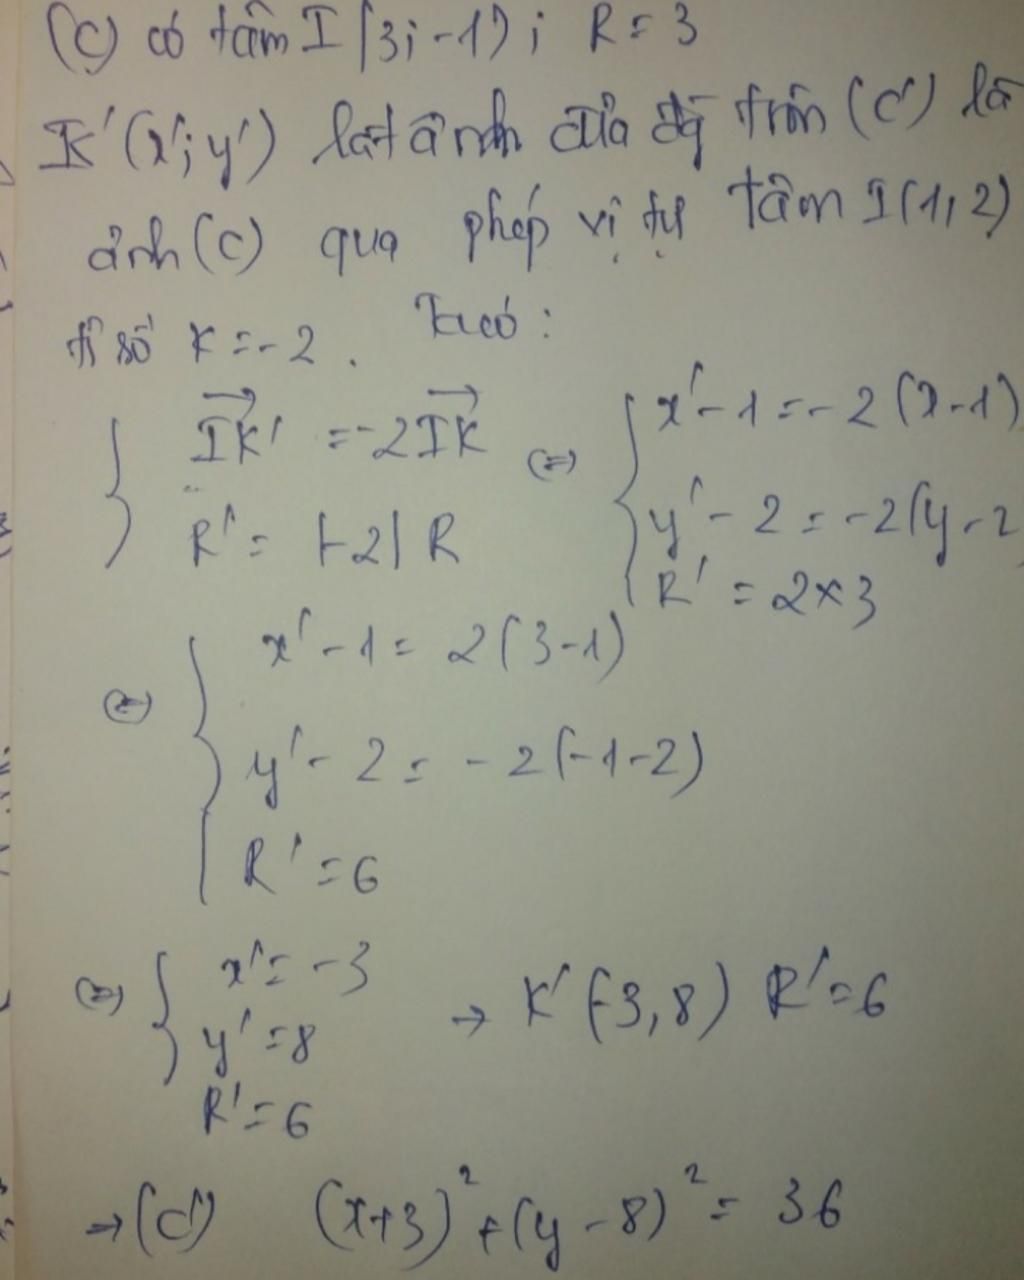 (C) có tâm I(3; -1); R = 3
K'(x'; y') là ảnh của đg tròn (C') là
ảnh (C) qua phép vị tự tâm I(1,2)
tỉ số K = -2. Ta có:
{ IK' = -2IK
R' = |-2| R
(=) { x' - 1 = -2(x-1)
y' - 2 = -2(y-2
R' = 2×3
(=) { x' - 1 = 2(3-1)
y' - 2 = -2(-1-2)
R' = 6
(=) { x' = -3
y' = 8
R' = 6
→ K'(-3,8) R' = 6
→ (C') (x+3)² + (y-8)² = 36